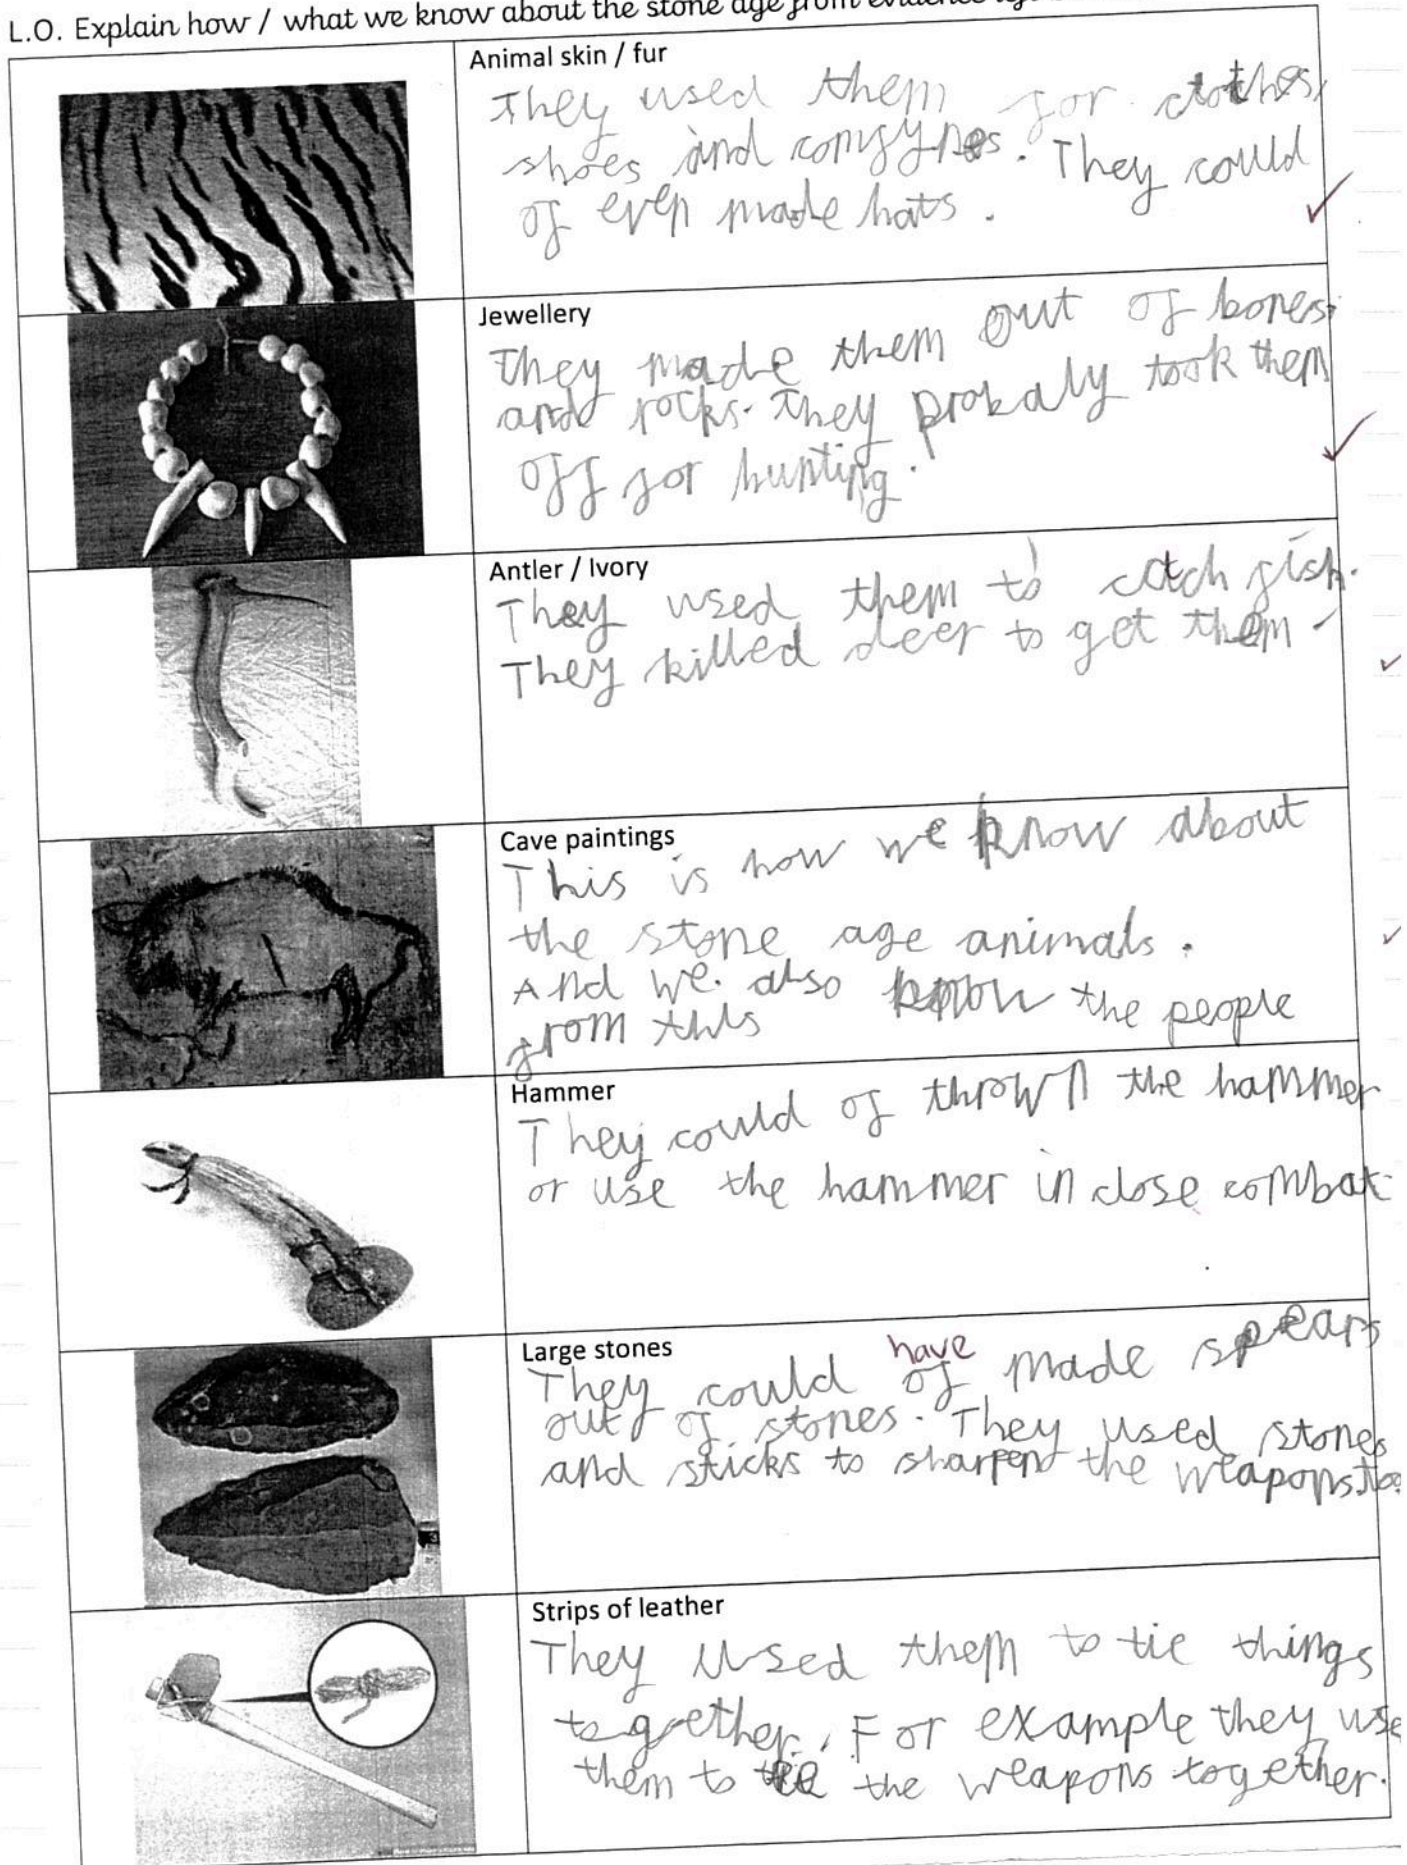 L.O. Explain how / what we know about the stone age from evidence
Animal skin / fur
They used them for clothes,
shoes and
. They could
of even made hats.
Jewellery
They made them out of bones
and rocks. They probaly took them
off for hunting.
Antler / Ivory
They used them to catch fish.
They killed deer to get them
Cave paintings
This is how we know about
the stone age animals.
And we also know the people
from this
Hammer
They could of thrown the hammer
or use the hammer in close combat
Large stones
have
They could of made spears
out of stones. They used stones
and sticks to sharpen the weapons
Strips of leather
They used them to tie things
together. For example they use
them to tie the weapons together.